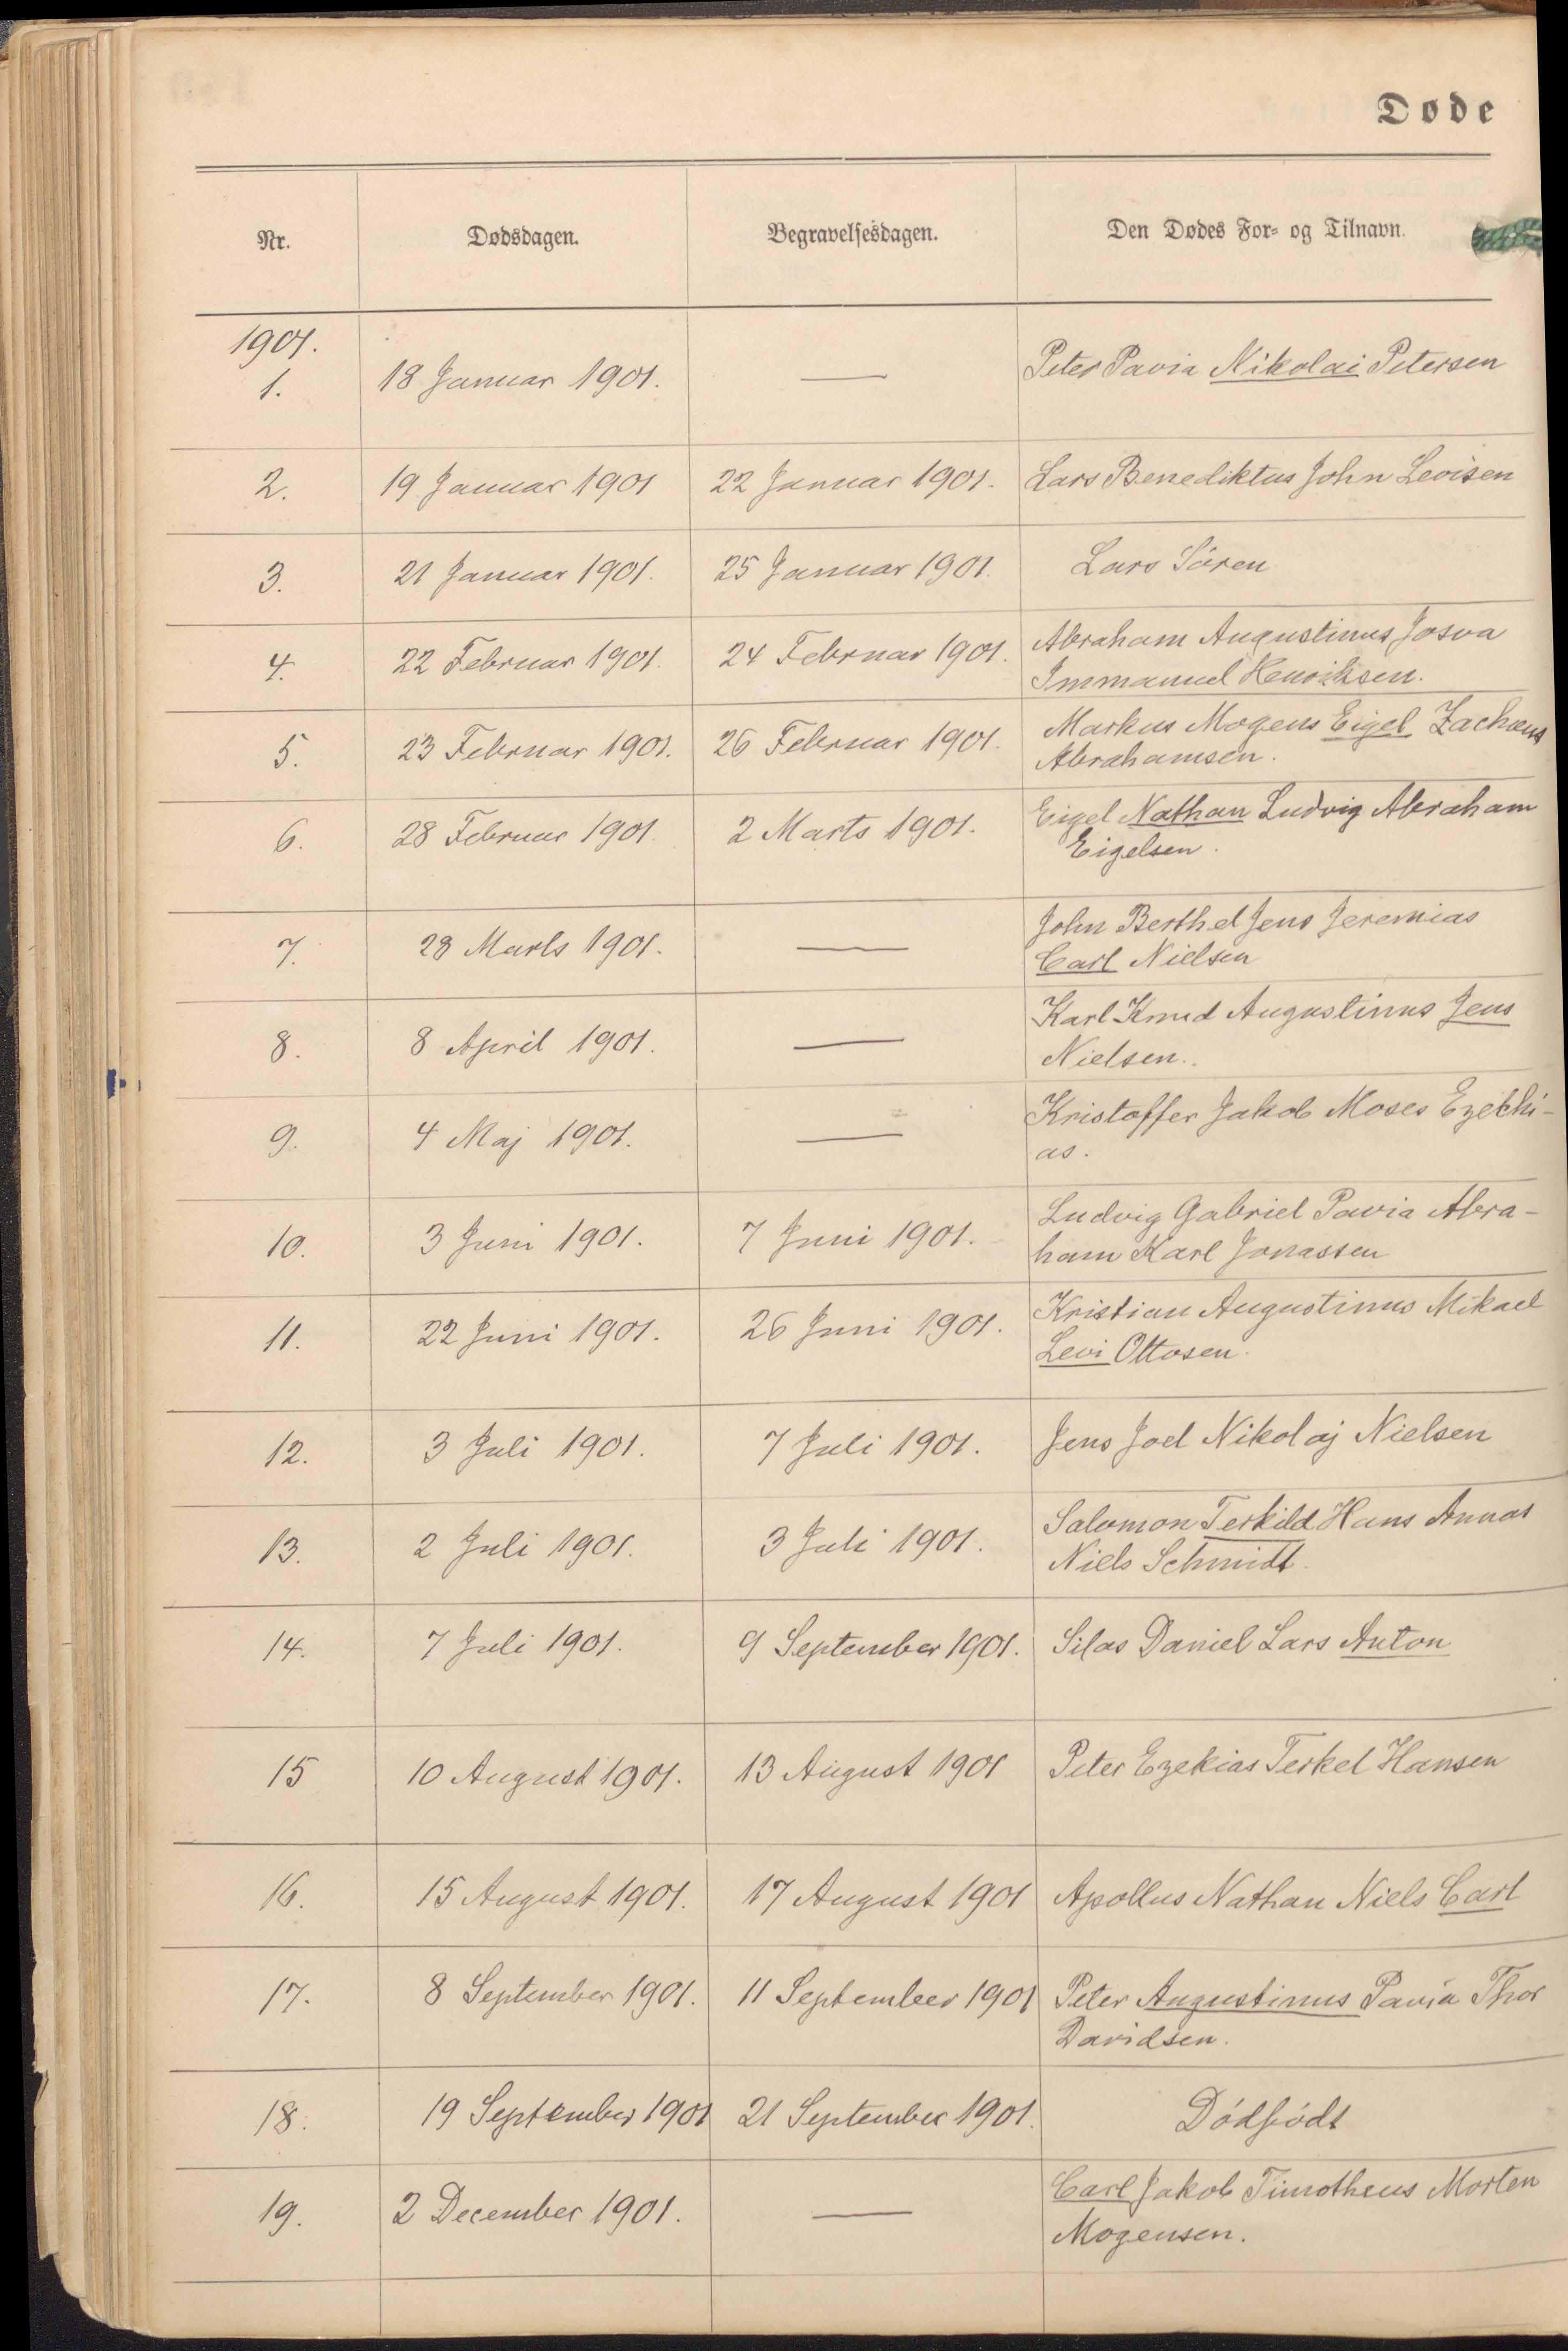 Døde
Nr. Dødsdagen. Begravelsesdagen. Den Dødes For- og Tilnavn.
1901.
1. 18 Januar 1901. — Peter Pavia Nikolai Petersen
2. 19 Januar 1901 22 Januar 1901. Lars Benediktus John Levisen
3. 21 Januar 1901. 25 Januar 1901. Lars Sören
4. 22 Februar 1901. 24 Februar 1901. Abraham Augustinus Josva
Immanuel Henriksen.
5. 23 Februar 1901. 26 Februar 1901. Markus Mogens Eigel Zachæus
Abrahamsen.
6. 28 Februar 1901. 2 Marts 1901. Eigel Nathan Ludvig Abraham
Eigelsen.
7. 28 Marts 1901. — John Berthel Jens Jeremias
Carl Nielsen
8. 8 April 1901. — Karl Knud Augustinus Jens
Nielsen.
9. 4 Maj 1901. — Kristoffer Jakob Moses Ezekhi-
as.
10. 3 Juni 1901. 7 Juni 1901. Ludvig Gabriel Pavia Abra-
ham Karl Jonassen
11. 22 Juni 1901. 26 Juni 1901. Kristian Augustinus Mikael
Levi Ottosen.
12. 3 Juli 1901. 7 Juli 1901. Jens Joel Nikolaj Nielsen
13. 2 Juli 1901. 3 Juli 1901. Salomon Terkild Hans Annas
Niels Schmidt.
14. 7 Juli 1901. 9 September 1901. Silas Daniel Lars Anton
15 10 August 1901. 13 August 1901 Peter Ezekias Terkel Hansen
16. 15 August 1901. 17 August 1901 Apollus Nathan Niels Carl
17. 8 September 1901. 11 September 1901 Peter Augustinus Pavia Thor
Davidsen.
18. 19 September 1901 21 September 1901. Dódfódt
19. 2 December 1901. — Carl Jakob Timotheus Morten
Mogensen.